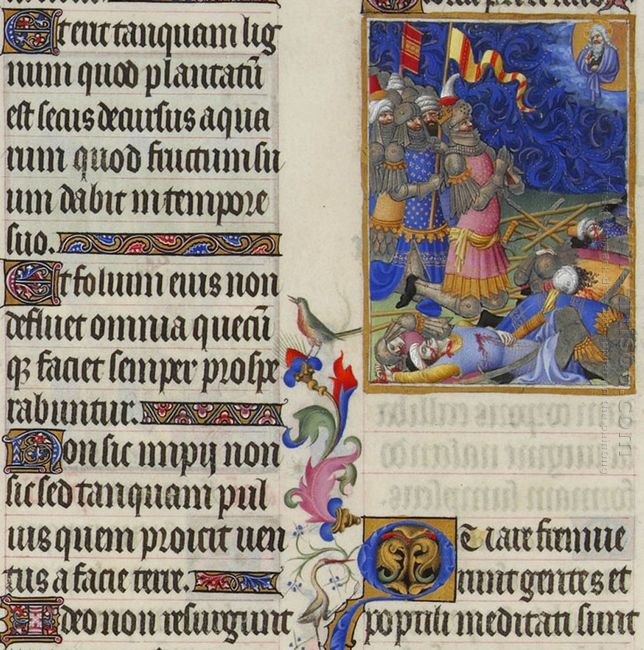 Et erit tanquam lig
num quod plantatũ
est secus decursus aqua
rum quod fructum su
um dabit in tempore
suo.
Et folium eius non
defluet omnia quecũ
qꝫ faciet semper prospe
rabuntur.
Non sic impij non
sic sed tanquam pul
uis quem proicit uen
tus a facie terre.
Ideo non resurgunt
Quare fremue
runt gentes et
populi meditati sunt